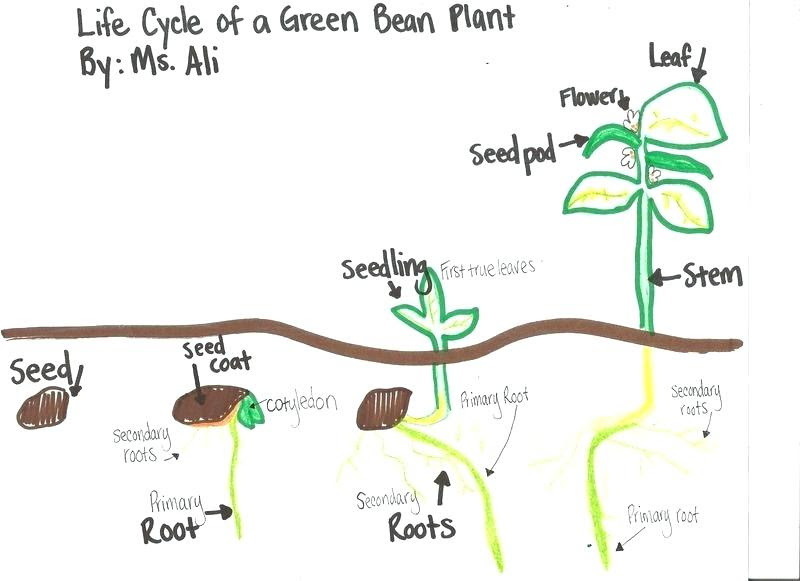 Life Cycle of a Green Bean Plant
By: Ms. Ali
Leaf
Flower
Seed pod
Seedling
First true leaves
Stem
Seed
seed
coat
cotyledon
Primary Root
Secondary
roots
Secondary
roots
Primary
Root
Secondary
Roots
Primary root